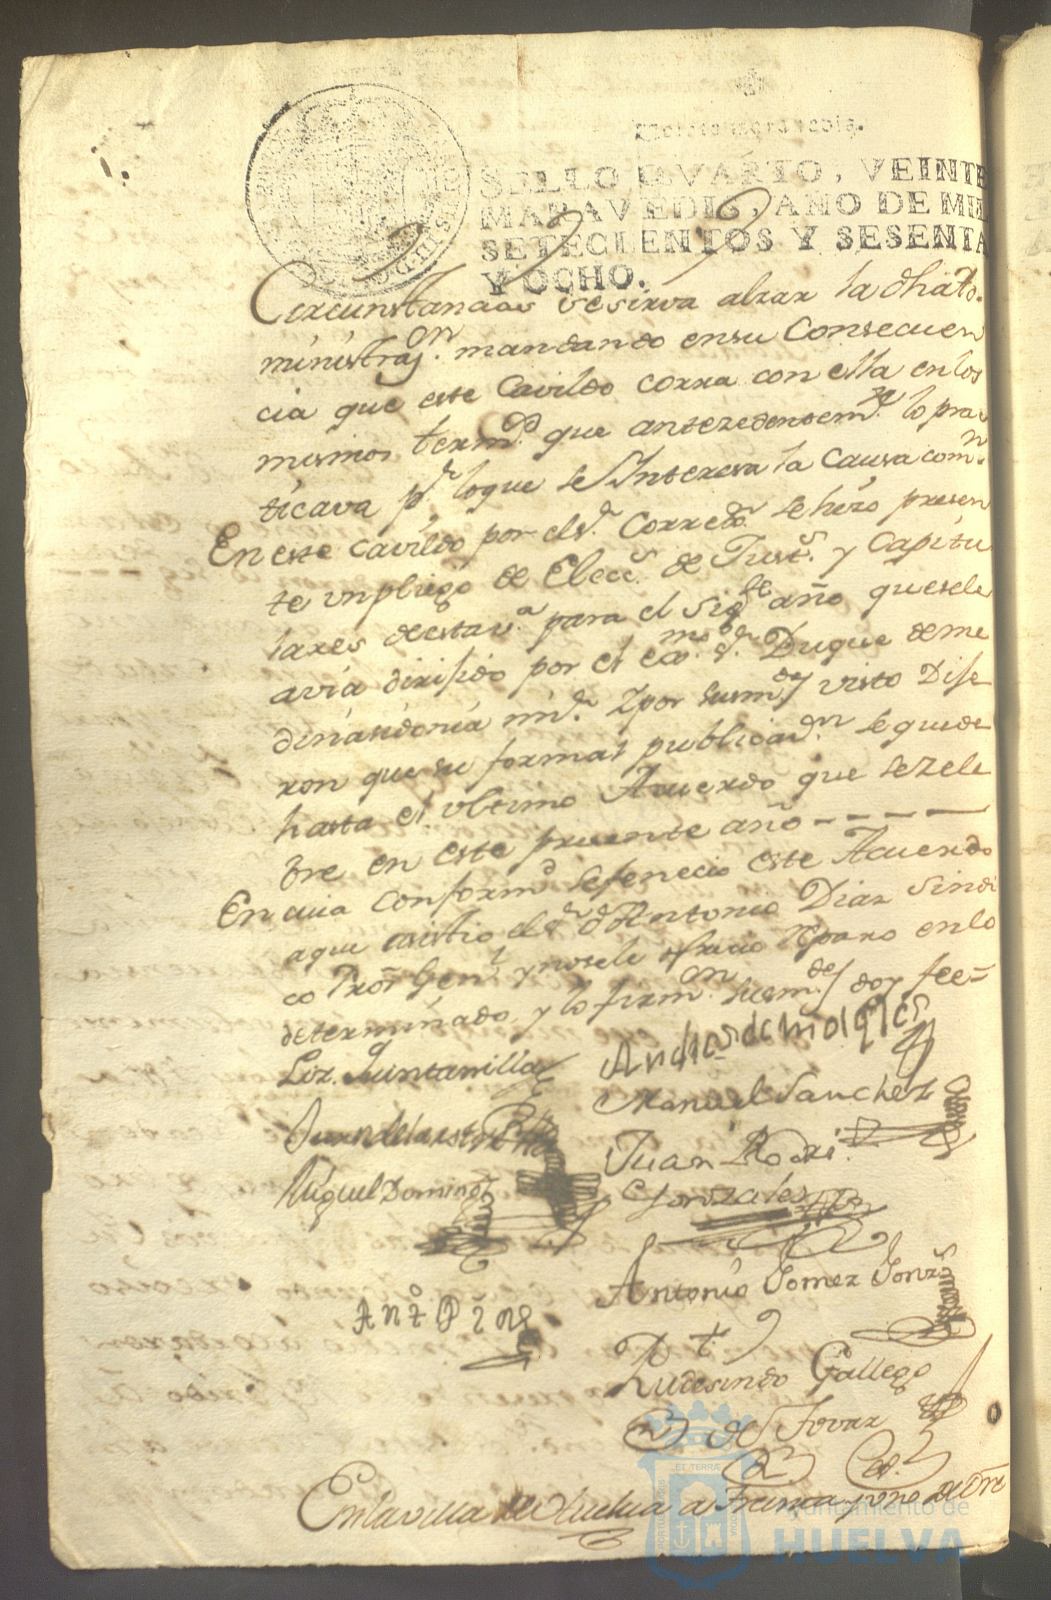 SELLO QVARTO, VEINTE
MARAVEDIS, AÑO DE MIL
SETECIENTOS Y SESENTA
Y OCHO.
Circunstancias se sirva alzar la dha
ministraz.on mandando en su Consecuen
cia que este Cavildo corra con ella en los
mismos term.os que antezedentem.te lo prac
ticava p.r lo que se Interesa la Causa com.n
En este cavildo por el s.r Corred.r se hizo presen
te un pliego de Elecc.s de Just.s y Capitu
lares de esta v.a para el sig.te año que se le
avia dirijido por el exmo. s.r Duque de me
dinasidonia mi s.r Y por sus m.des visto Dije
ron que su formal publicaz.on se quede
hasta el ultimo Acuerdo que se zele
bre en este presente año - - - - -
En cuia conform.d se fenecio este Acuerdo
a que asistio el s.r d.n Antonio Diaz Sindi
co Pror Gen.l y no se le ofrecio Reparo en lo
determinado, y lo firm.on sus m.des doy fee=
Loz. Quintanilla
Manuel Sanchez
Juan Rodri.
Gonzales
Miguel Doming
Antonio Gomez Gonz.s
Rudesindo Gallego
de Tovar
En la villa de Huelva a Treinta y uno de
Ayuntamiento de
HUELVA